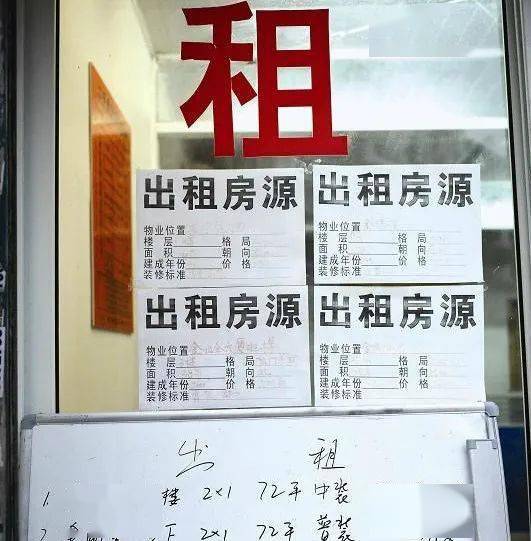 租
出租房源
物业位置
楼 层 格 局
面 积 朝 向
建成年份 价 格
装修标准
出租房源
物业位置
楼 层 格 局
面 积 朝 向
建成年份 价 格
装修标准
出租房源
物业位置
楼 层 格 局
面 积 朝 向
建成年份 价 格
装修标准
出租房源
物业位置
楼 层 格 局
面 积 朝 向
建成年份 价 格
装修标准
出 租
1. 楼 2×1 72平 中装
2. 下 2×1 72平 普装